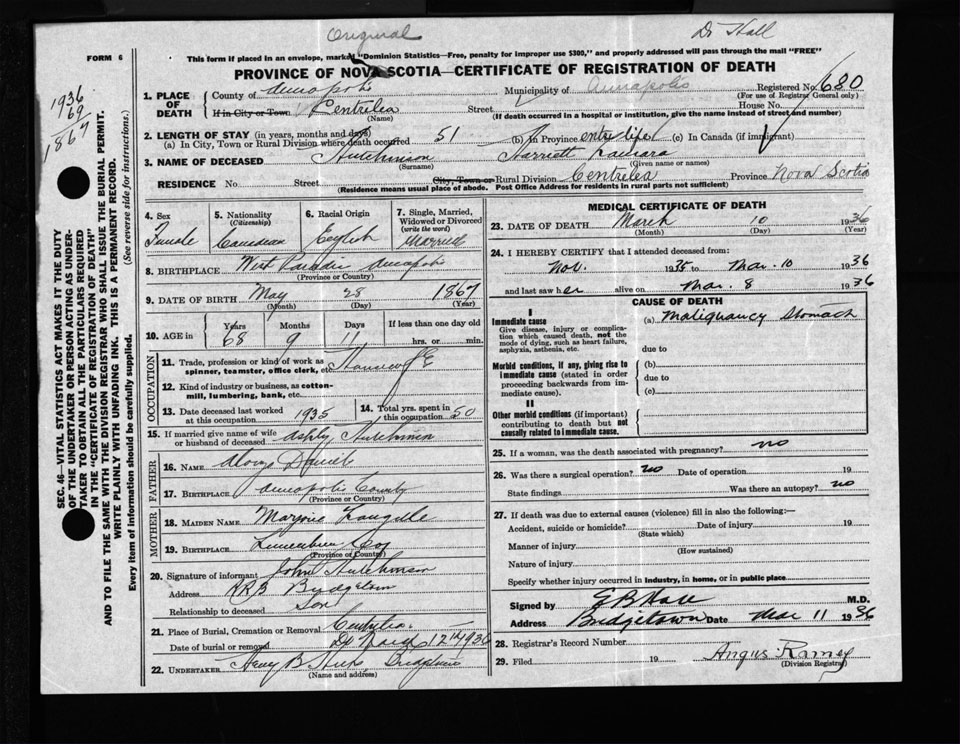 Original
Dr Hall
FORM 6
This form if placed in an envelope, marked "Dominion Statistics—Free, penalty for improper use $300," and properly addressed will pass through the mail "FREE"
PROVINCE OF NOVA SCOTIA—CERTIFICATE OF REGISTRATION OF DEATH
1936
69
1867
1. PLACE OF DEATH
County of Annapolis Municipality of Annapolis Registered No. 680
(For use of Registrar General only)
If in City or Town Centrelea Street House No.
(Name) (If death occurred in a hospital or institution, give the name instead of street and number)
2. LENGTH OF STAY (in years, months and days)
(a) In City, Town or Rural Division where death occurred 51 (b) in Province entire life (c) In Canada (if immigrant)
3. NAME OF DECEASED Hutchinson Harriett
(Surname) (Given name or names)
RESIDENCE No. Street City, Town or Rural Division Centrelea Province Nova Scotia
(Residence means usual place of abode. Post Office Address for residents in rural parts not sufficient)
4. Sex
Female
5. Nationality (Citizenship)
Canadian
6. Racial Origin
English
7. Single, Married, Widowed or Divorced (write the word)
Married
8. BIRTHPLACE West Annapolis
(Province or Country)
9. DATE OF BIRTH May 28 1867
(Month) (Day) (Year)
10. AGE in Years Months Days If less than one day old
68 9 11 hrs. or min.
OCCUPATION
11. Trade, profession or kind of work as spinner, teamster, office clerk, etc. Housewife
12. Kind of industry or business, as cotton-mill, lumbering, bank, etc.
13. Date deceased last worked at this occupation 1935 14. Total yrs. spent in this occupation 50
15. If married give name of wife or husband of deceased Ashby Hutchinson
FATHER
16. Name Daniels
17. Birthplace Annapolis County
(Province or Country)
MOTHER
18. Maiden Name Marjorie Langille
19. Birthplace Lunenburg Co
(Province or Country)
20. Signature of informant John Hutchinson
Address RR3 Bridgetown
Relationship to deceased Son
21. Place of Burial, Cremation or Removal Centrelea
Date of burial or removal March 12 1936
22. UNDERTAKER B Hicks, Bridgetown
(Name and address)
MEDICAL CERTIFICATE OF DEATH
23. DATE OF DEATH March 10 1936
(Month) (Day) (Year)
24. I HEREBY CERTIFY that I attended deceased from:
Nov. 1935 to Mar. 10 1936
and last saw her alive on Mar. 8 1936
CAUSE OF DEATH
I
Immediate cause
Give disease, injury or complication which caused death, not the mode of dying, such as heart failure, asphyxia, asthenia, etc.
(a) Malignancy Stomach
due to
Morbid conditions, if any, giving rise to immediate cause (stated in order proceeding backwards from immediate cause).
(b)
due to
(c)
II
Other morbid conditions (if important) contributing to death but not causally related to immediate cause.
25. If a woman, was the death associated with pregnancy? no
26. Was there a surgical operation? no Date of operation 19
State findings Was there an autopsy? no
27. If death was due to external causes (violence) fill in also the following:—
Accident, suicide or homicide? Date of injury 19
(State which)
Manner of injury
(How sustained)
Nature of injury
Specify whether injury occurred in industry, in home, or in public place
Signed by M.D.
Address Bridgetown Date Mar 11 1936
28. Registrar's Record Number
29. Filed 19 Angus Ramey
(Division Registrar)
SEC. 46—VITAL STATISTICS ACT MAKES IT THE DUTY
OF THE UNDERTAKER OR PERSON ACTING AS UNDER-
TAKER TO OBTAIN ALL THE PARTICULARS REQUIRED
IN THE "CERTIFICATE OF REGISTRATION OF DEATH"
AND TO FILE THE SAME WITH THE DIVISION REGISTRAR WHO SHALL ISSUE THE BURIAL PERMIT.
WRITE PLAINLY WITH UNFADING INK. THIS IS A PERMANENT RECORD.
Every item of information should be carefully supplied. (See reverse side for instructions.)